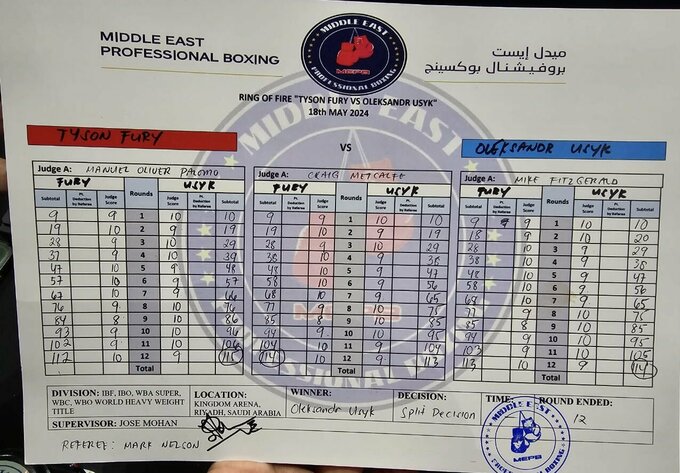 MIDDLE EAST
PROFESSIONAL BOXING
MIDDLE EAST
PROFESSIONAL BOXING
MEPB
ميدل إيست
بروفيشنال بوكسينج
RING OF FIRE "TYSON FURY VS OLEKSANDR USYK"
18th MAY 2024
TYSON FURY VS OLEKSANDR USYK
Judge A: MANUEL OLIVER PALOMO Judge A: CRAIG METCALFE Judge A: MIKE FITZGERALD
FURY Rounds USYK FURY Rounds USYK FURY Rounds USYK
Subtotal Pt. Deduction by Referee Judge Score Judge Score Pt. Deduction by Referee Subtotal Subtotal Pt. Deduction by Referee Judge Score Judge Score Pt. Deduction by Referee Subtotal Subtotal Pt. Deduction by Referee Judge Score Judge Score Pt. Deduction by Referee Subtotal
9 9 1 10 10 9 9 1 10 10 9 9 1 10 10
19 10 2 9 19 19 10 2 9 19 18 9 2 10 20
28 9 3 10 29 28 9 3 10 29 28 10 3 9 29
37 9 4 10 39 38 10 4 9 38 38 10 4 9 38
47 10 5 9 48 48 10 5 9 47 48 10 5 9 47
57 10 6 9 57 58 10 6 9 56 58 10 6 9 56
67 10 7 9 66 68 10 7 9 65 68 10 7 9 65
76 9 8 10 76 77 9 8 10 75 77 9 8 10 75
84 8 9 10 86 85 8 9 10 85 85 8 9 10 85
93 9 10 10 96 94 9 10 10 95 94 9 10 10 95
102 9 11 10 106 104 10 11 9 104 103 9 11 10 105
112 10 12 9 115 114 10 12 9 113 113 10 12 9 114
Total Total Total
DIVISION: IBF, IBO, WBA SUPER, WBC, WBO WORLD HEAVY WEIGHT TITLE
LOCATION: KINGDOM ARENA, RIYADH, SAUDI ARABIA
WINNER: Oleksandr Usyk
DECISION: Split Decision
TIME:
ROUND ENDED: 12
SUPERVISOR: JOSE MOHAN
REFEREE: MARK NELSON
MIDDLE EAST
MEPB